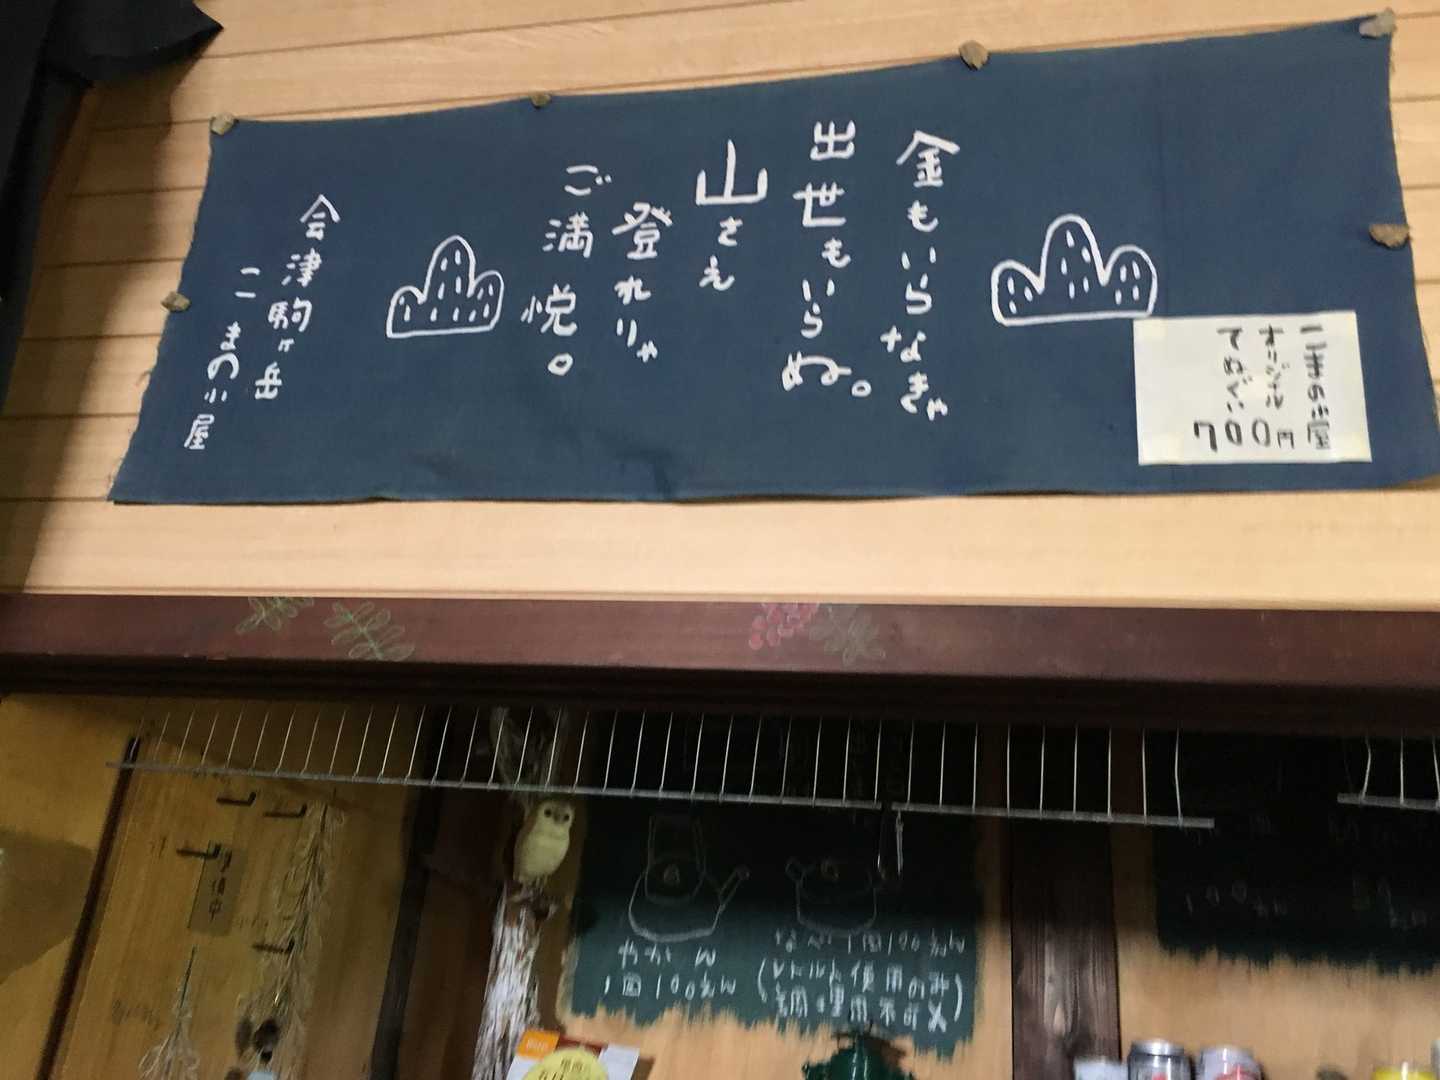 金もいらなきゃ
出世もいらぬ。
山さえ
登れりゃ
ご満悦。
会津駒ヶ岳
こまの小屋
こまの小屋
オリジナル
てぬぐい
700円
やかん
1回100えん
なべ1回100えん
(レトルト使用のみ
調理用不可×)
100えん